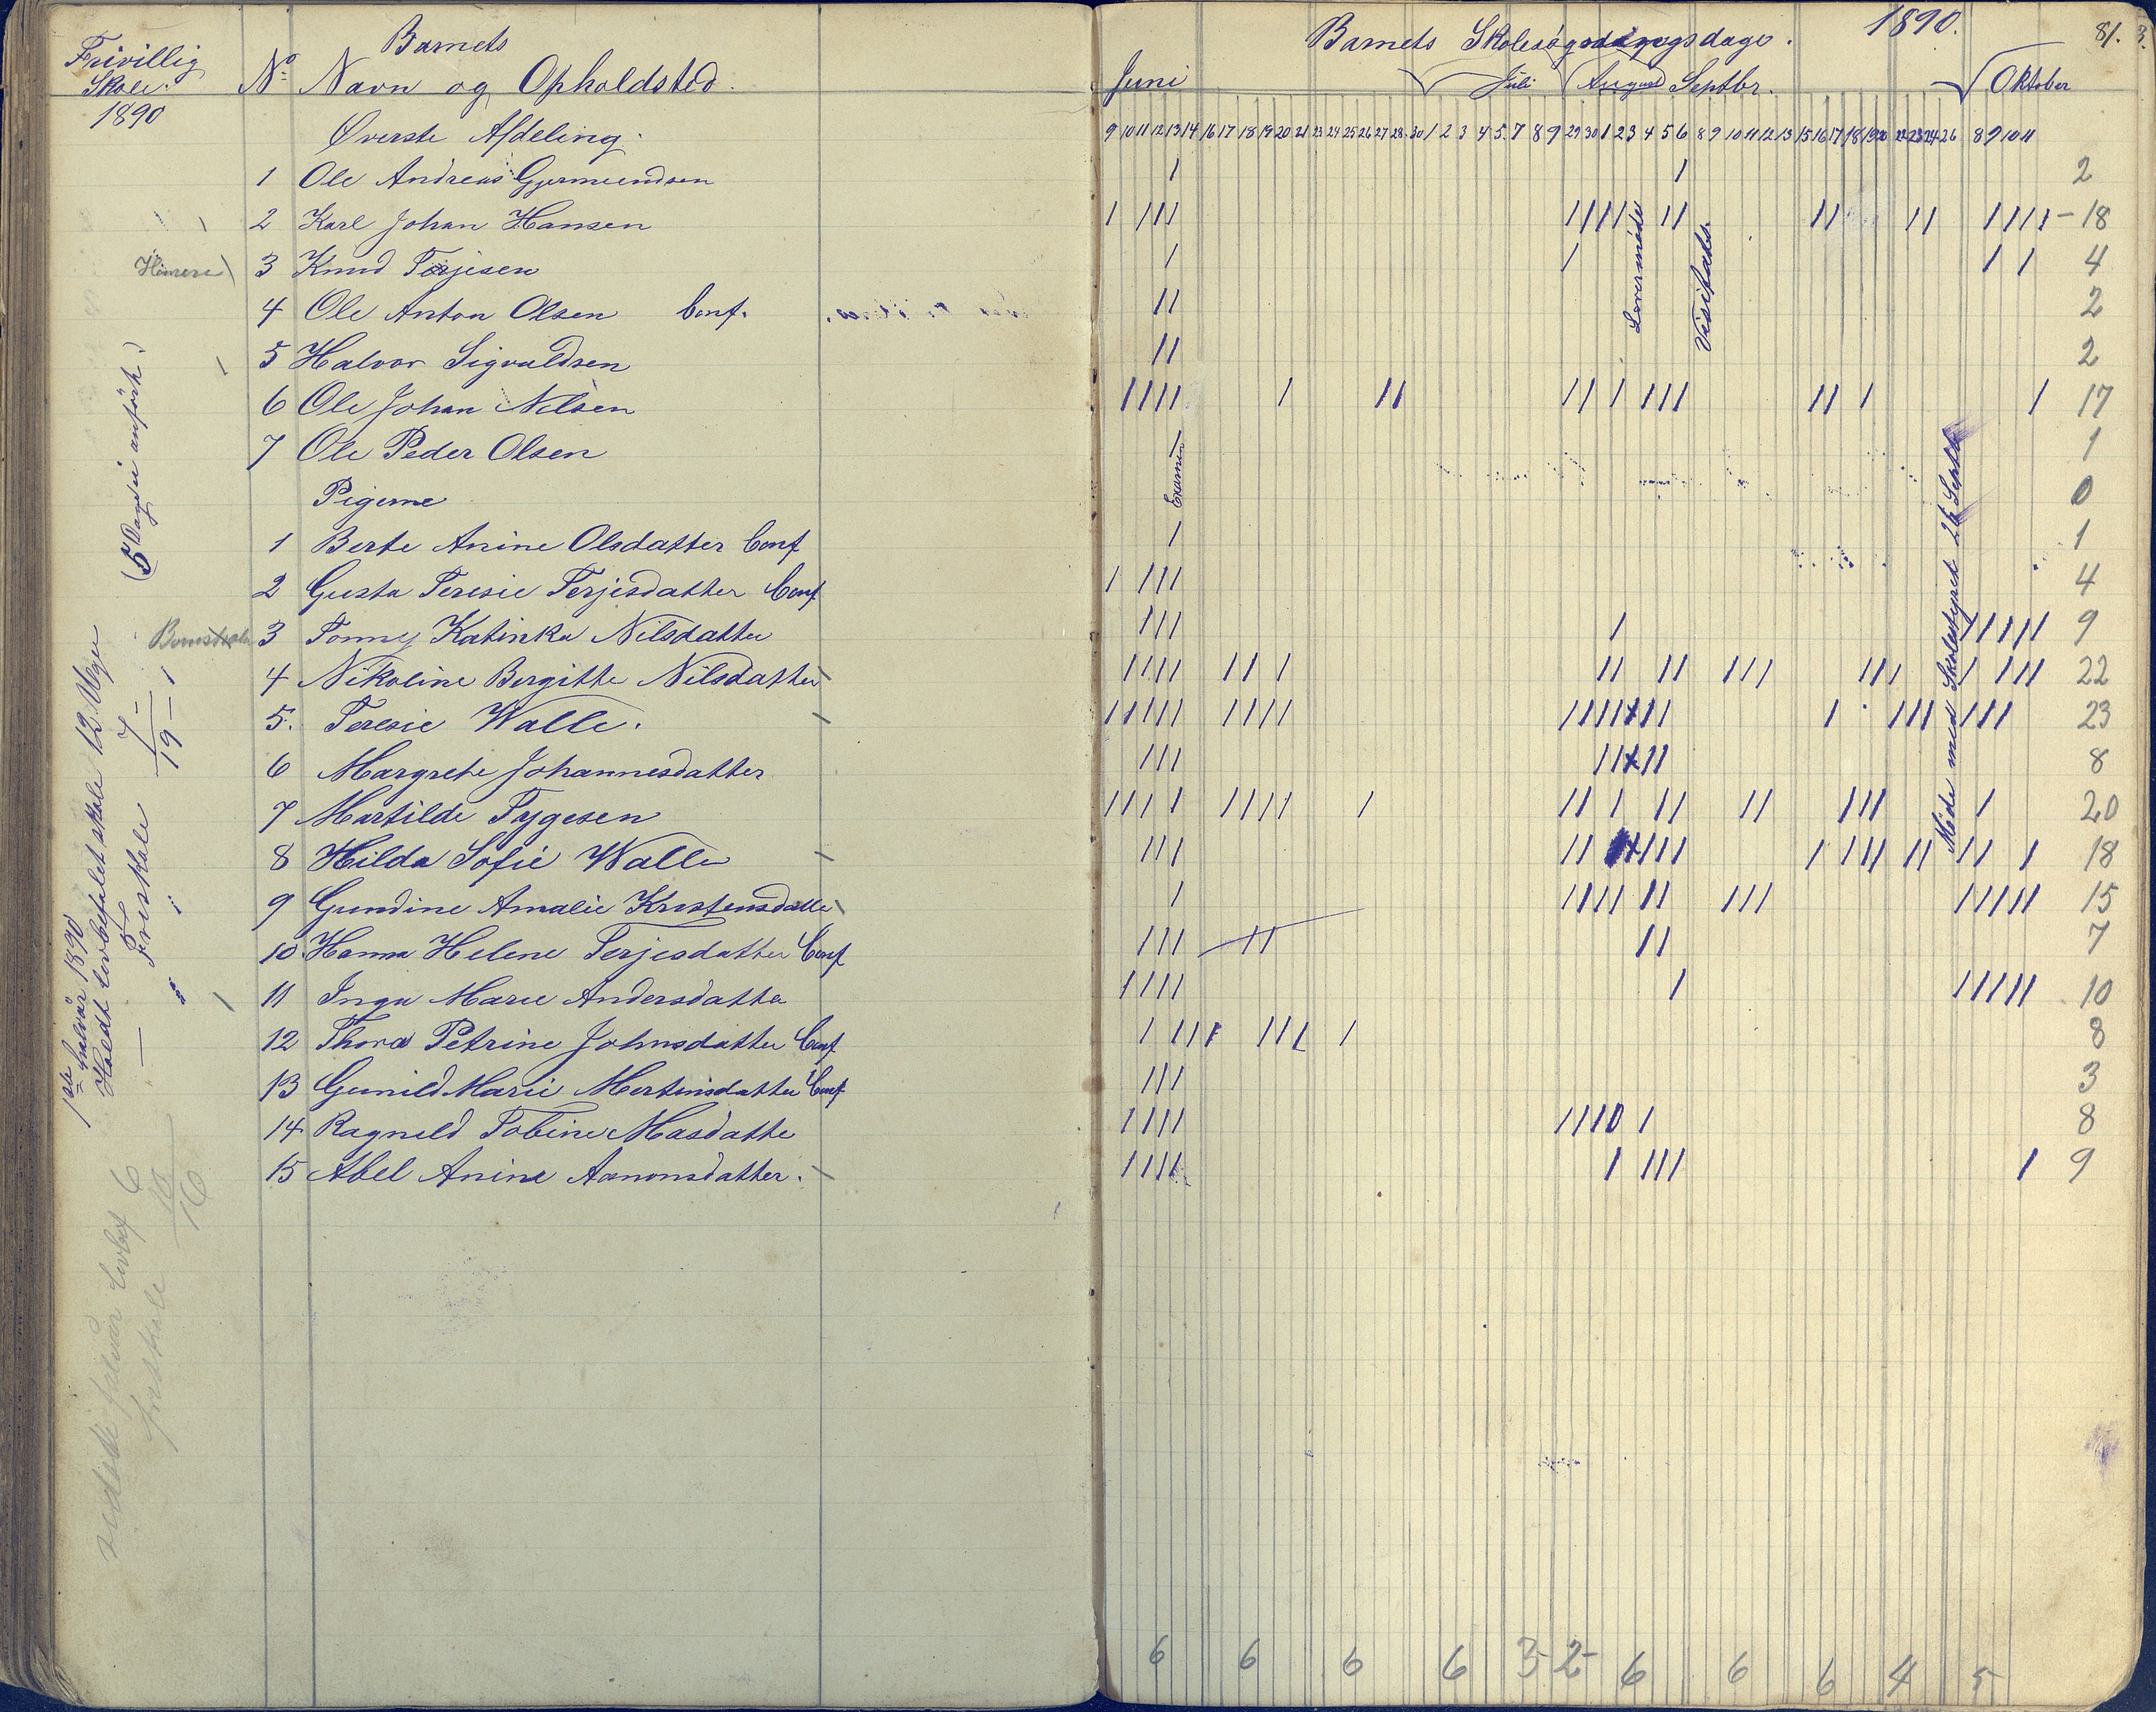 Frivillig
Skole.
1890
Barnets
No Navn og Opholdsted.
Øverste Afdeling.
1 Ole Andreas Gjermundsen
2 Karl Johan Hansen
3 Knud Terjesen
4 Ole Anton Olsen Conf.
5 Halvor Sigvaldsen
6 Ole Johan Nilsen
7 Ole Peder Olsen
Pigerne
1 Berte Anine Olsdatter Conf
2 Gusta Teresie Terjesdatter Conf
3 Tonny Katinka Nilsdatter
4 Nikoline Bergitte Nilsdatter
5. Teresie Walle.
6 Margrete Johannesdatter
7 Martilde Tygesen
8 Hilda Sofie Walle
9 Gundine Amalie Kristensdatte
10. Hanna Helene Terjesdatter Conf
11 Inga Marie Andersdatter
12 Thora Petrine Johnsdatter Conf
13 Gunild Marie Mortensdatter Conf
14 Ragnild Tobine Masdatte
15 Abel Anine Aanonsdatter.
(5 Dage ei anført)
1ste halvår 1890
Holdt lovbefalet skole 12 Uger
— " Friskole " 7 –
19 – 1
lovbef 6
friskole 10
16
Barnets Skolesøgningsdage. 1890. 81.
Juni Juli August Septbr. Oktober
9 10 11 12 13 14 16 17 18 19 20 21 23 24 25 26 27 28 30 1 2 3 4 5 7 8 9 29 30 1 2 3 4 5 6 8 9 10 11 12 13 15 16 17 18 19 20 22 23 24 26 8 9 10 11
2
18
4
2
2
17
1
0
1
4
9
22
23
8
20
18
15
7
10
8
3
8
9
Examen
Lærermøde
Visitats.
Møde med Skolestyret 26 Septbr
6 6 6 6 3 2 6 6 6 4 5